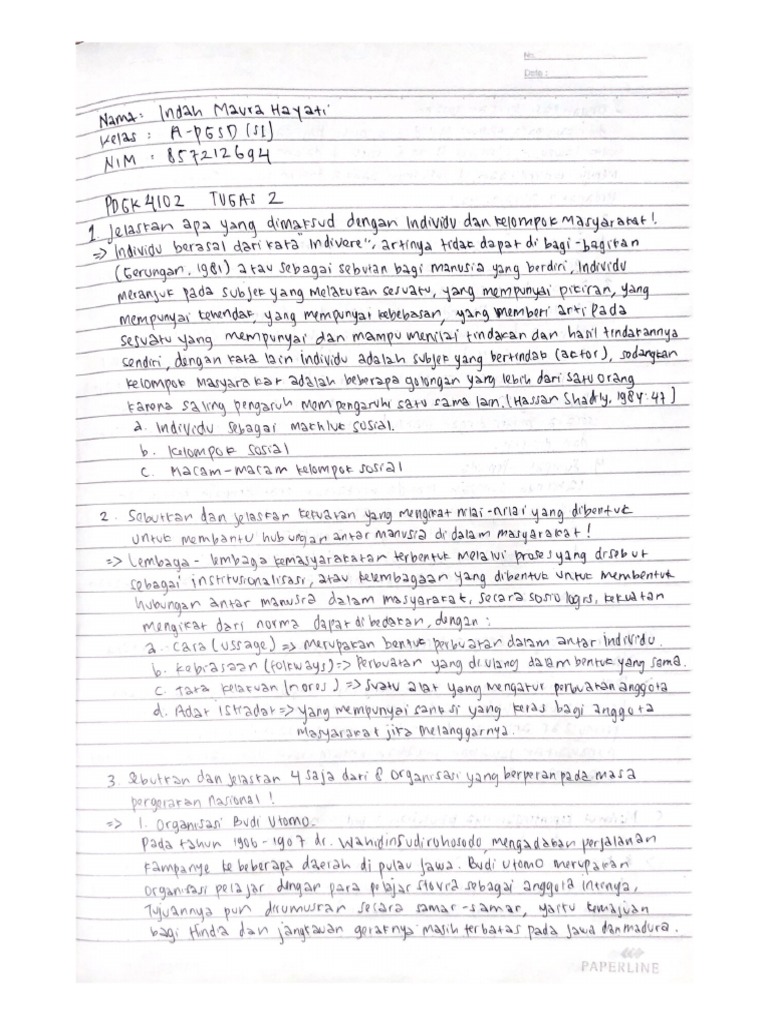 No.
Date :
Nama : Indah Maura Hayati
Kelas : A-PGSD (S1)
NIM : 857212694
PDGK 4102 TUGAS 2
1. Jelaskan apa yang dimaksud dengan Individu dan kelompok Masyarakat !
=> Individu berasal dari kata "Indivere", artinya tidak dapat di bagi-bagikan
(Gerungan, 1981) atau sebagai sebutan bagi manusia yang berdiri, Individu
meranjuk pada subjek yang melakukan sesuatu, yang mempunyai pikiran, yang
mempunyai kehendak, yang mempunyai kebebasan, yang memberi arti pada
sesuatu yang mempunyai dan mampu menilai tindakan dan hasil tindakannya
sendiri, dengan kata lain individu adalah subjek yang bertindak (actor), sedangkan
kelompok masyarakat adalah beberapa golongan yang lebih dari satu orang
karena saling pengaruh mempengaruhi satu sama lain. (Hassan Shadly, 1984:47)
a. Individu sebagai makhluk sosial.
b. Kelompok sosial
c. Macam-macam kelompok sosial
2. Sebutkan dan jelaskan kekuatan yang mengikat nilai-nilai yang dibentuk
untuk membantu hubungan antar manusia di dalam masyarakat !
=> Lembaga-lembaga kemasyarakatan terbentuk melalui proses yang disebut
sebagai institusionalisasi, atau kelembagaan yang dibentuk untuk membentuk
hubungan antar manusia dalam masyarakat, secara sosiologis, kekuatan
mengikat dari norma dapat dibedakan, dengan :
a. Cara (ussage) => Merupakan bentuk perbuatan dalam antar individu.
b. Kebiasaan (folkways) => Perbuatan yang diulang dalam bentuk yang sama.
c. Tata kelakuan (nores) => Suatu alat yang mengatur perbuatan anggota
d. Adat istiadat => yang mempunyai sanksi yang keras bagi anggota
Masyarakat jika melanggarnya.
3. Sebutkan dan jelaskan 4 saja dari 8 organisasi yang berperan pada masa
pergerakan Nasional !
=> 1. Organisasi Budi Utomo.
Pada tahun 1906-1907 dr. Wahidin Sudirohosodo, mengadakan perjalanan
kampanye ke beberapa daerah di pulau Jawa. Budi Utomo merupakan
organisasi pelajar dengan para pelajar Stovia sebagai anggota intinya,
Tujuannya pun dirumuskan secara samar-samar, yaitu kemajuan
bagi Hindia dan jangkauan geraknya masih terbatas pada Jawa dan madura.
PAPERLINE